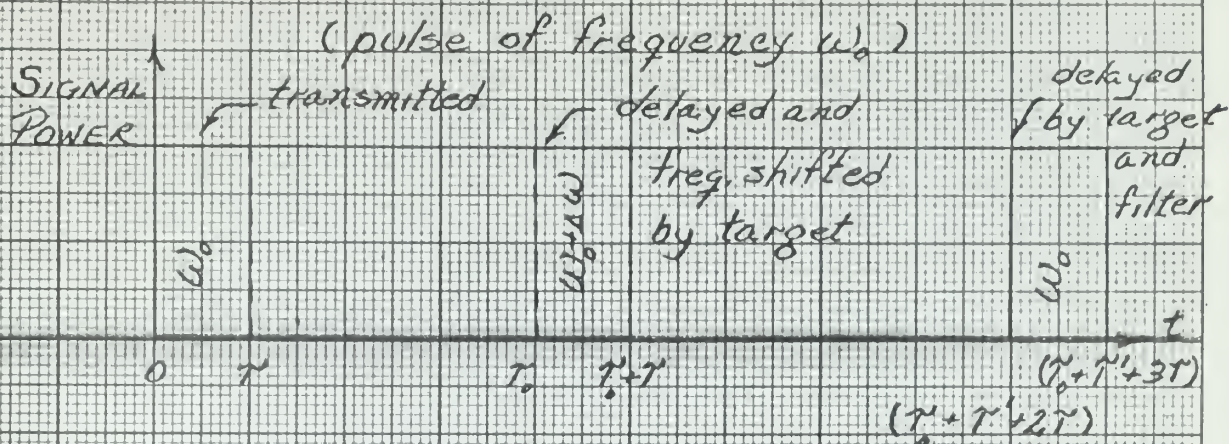 (pulse of frequency ω₀)
SIGNAL
POWER
transmitted
delayed and
freq. shifted
by target
delayed
by target
and
filter
ω₀
ω₀+Δω
ω₀
t
0
τ
τ₀
τ₀+τ
(τ₀+τ'+3τ)
(τ₀+τ'+2τ)